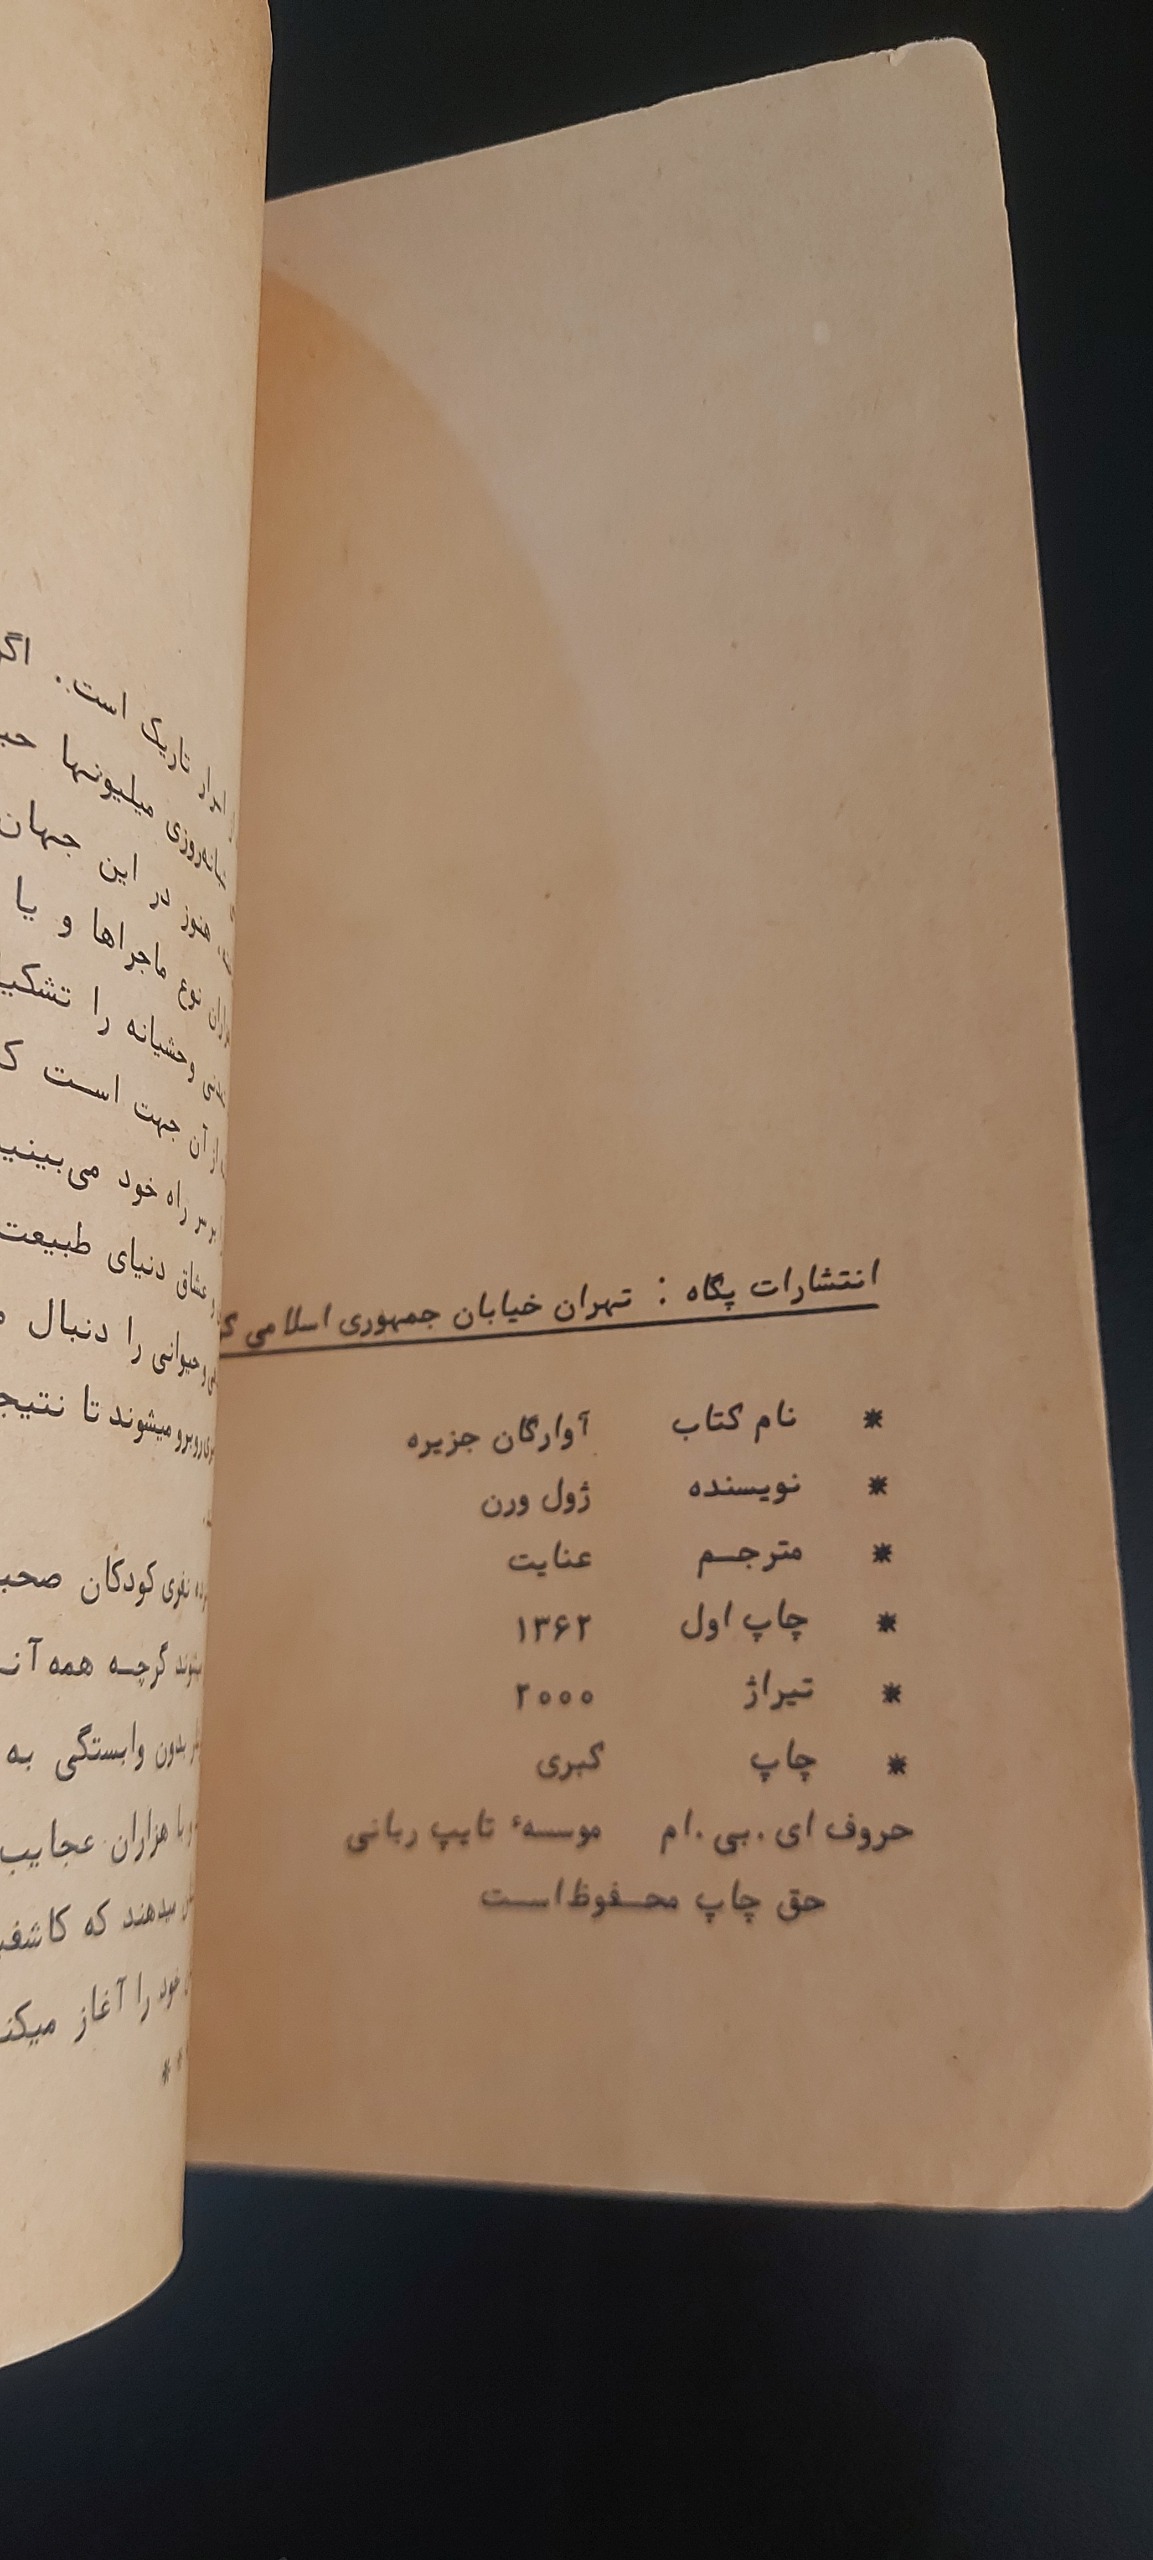 انتشارات پگاه : تهران خیابان جمهوری اسلامی
* نام کتاب آوارگان جزیره
* نویسنده ژول ورن
* مترجم عنایت
* چاپ اول ۱۳۶۲
* تیراژ ۲۰۰۰
* چاپ کبری
حروف ای.بی.ام موسسهٔ تایپ ربانی
حق چاپ محفوظ است
تاریک است. اگر
میلیونها
هنوز در این جهان
نوع ماجراها و یا
وحشیانه را
از آن جهت است
راه خود
عشاق دنیای طبیعت
و حیوانی را دنبال
روبرو میشوند تا
نفری کودکان
گرچه همه
بدون وابستگی به
با هزاران عجایب
میدهند که
خود را آغاز